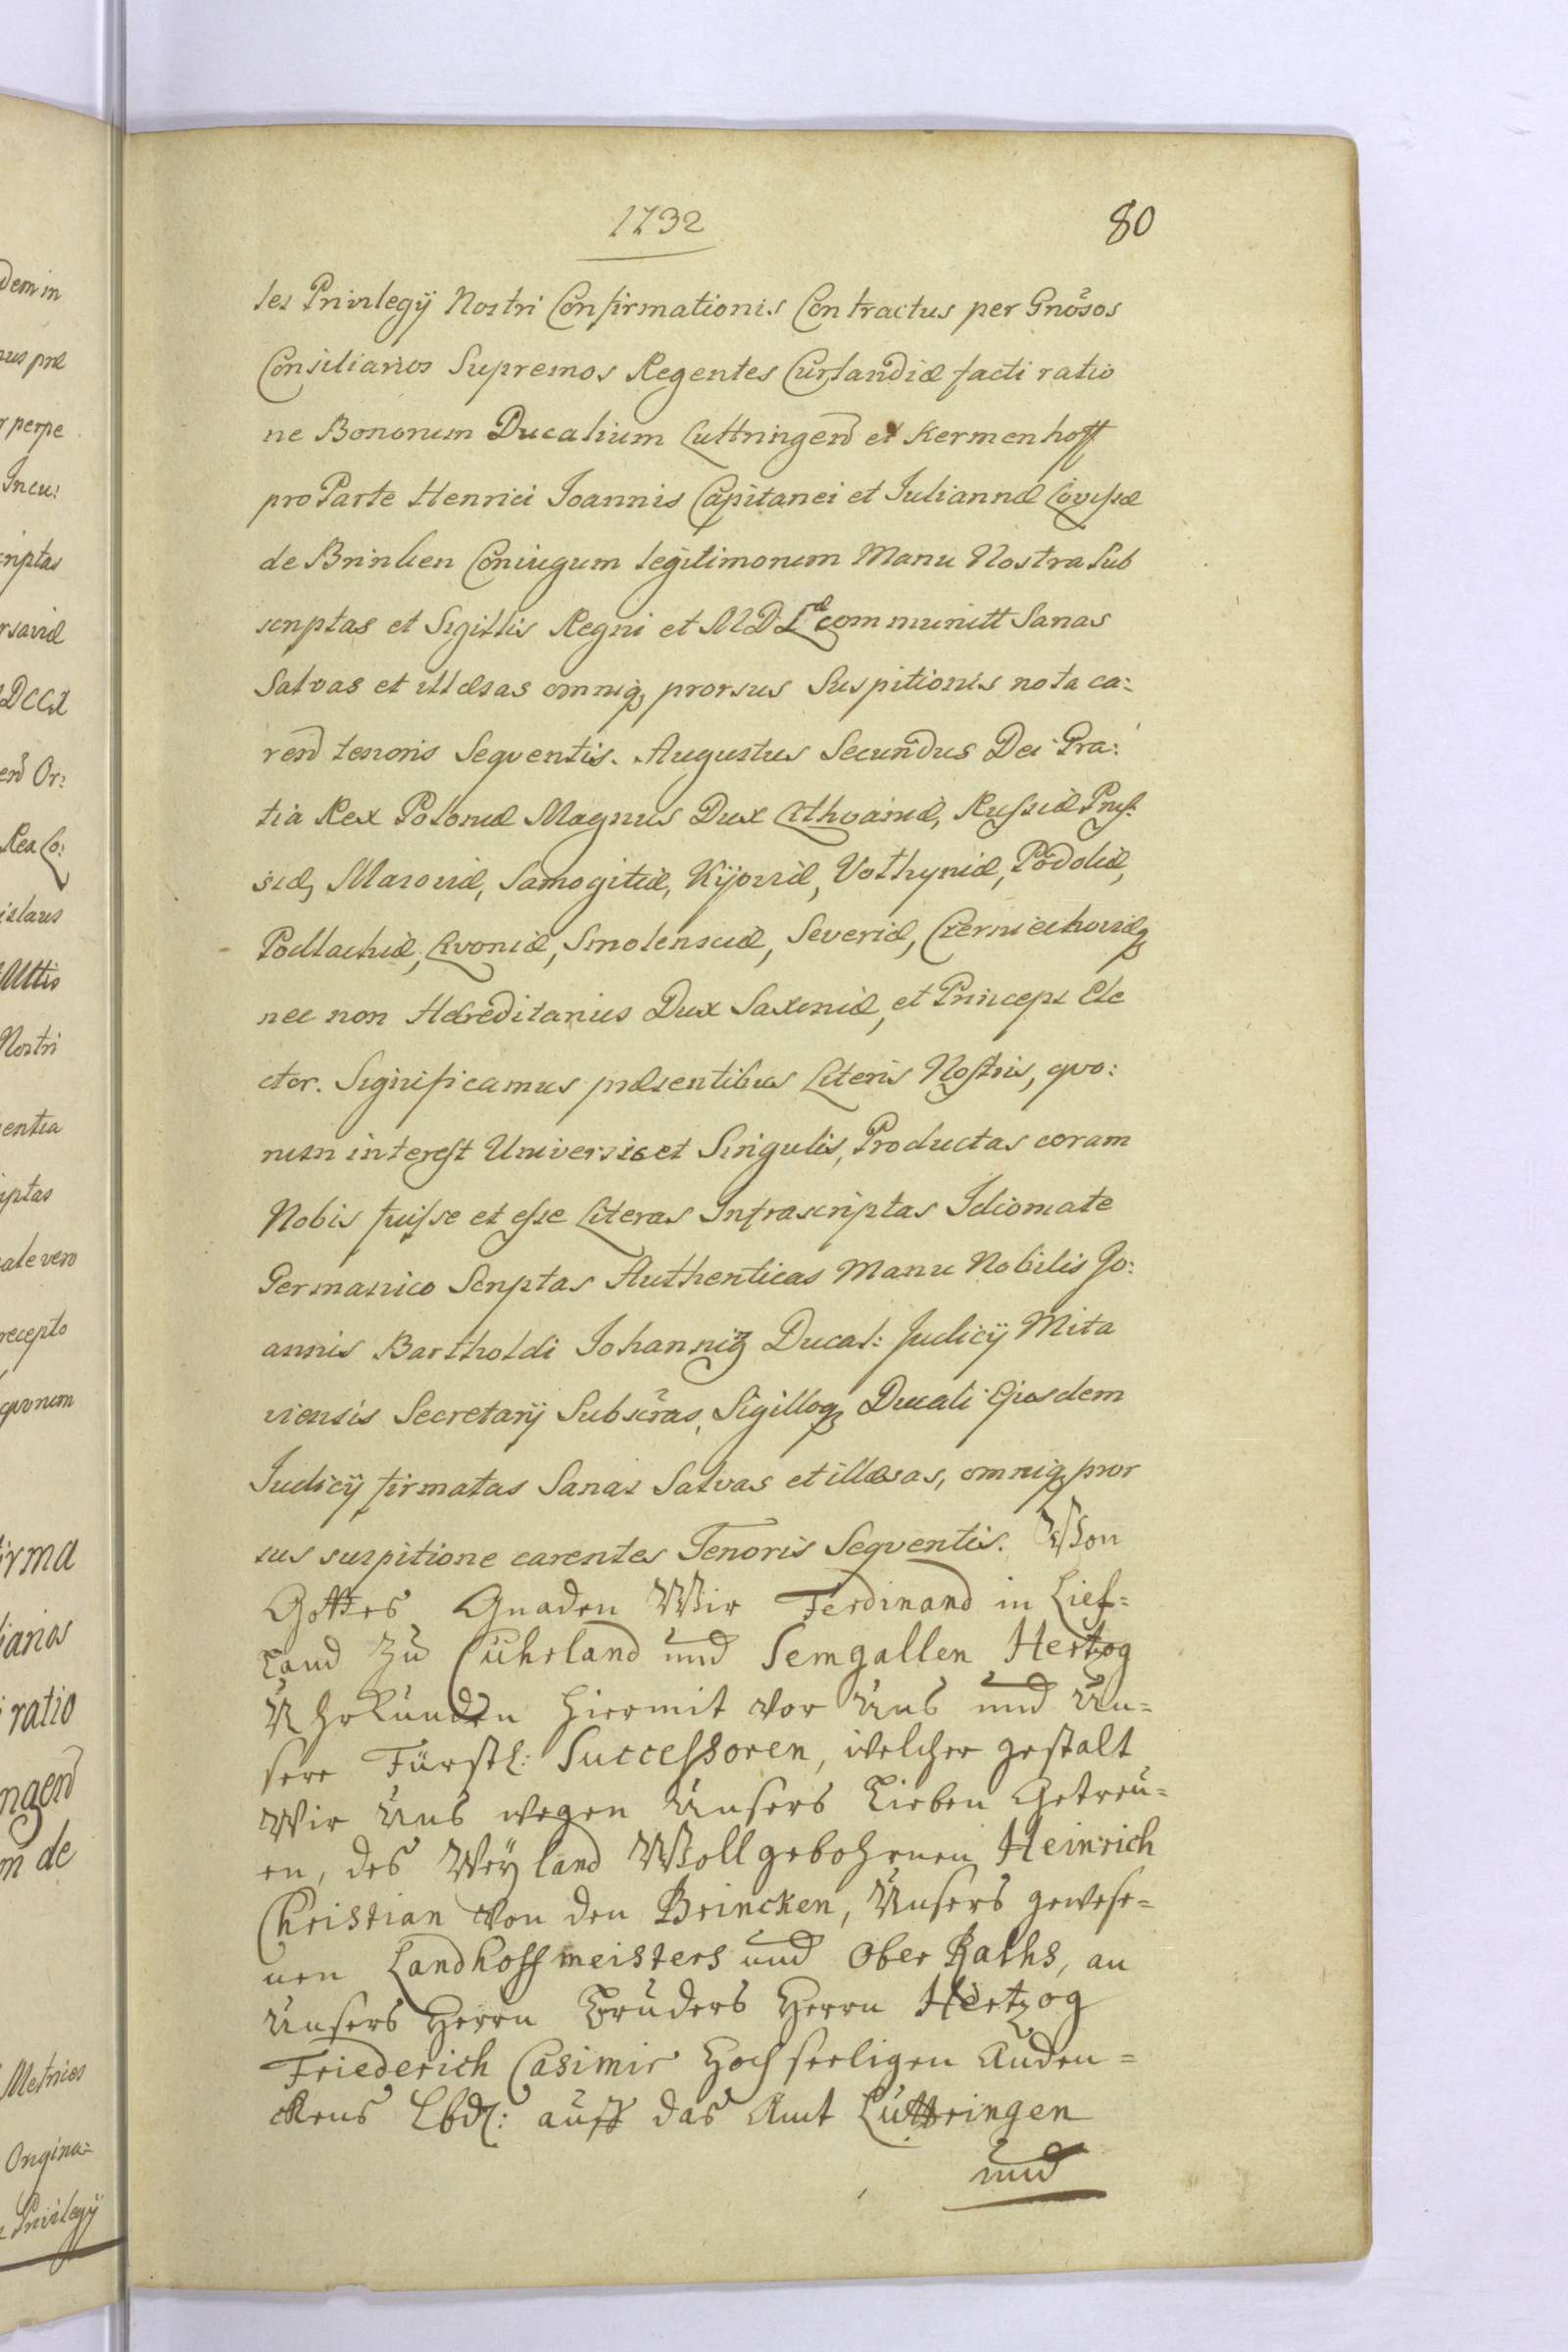 1732
80
les Privilegÿ Nostri Confirmationis Contractus per Gnõsos
Consiliarios Supremos Regentes Curlandiæ facti ratio
ne Bonorum Ducalium Luttringend et Kermenhoff
pro Parte Henrici Joannis Capitanei et Juliannæ Lovisæ
de Brinken Coniugum legitimorum Manu Nostra Sub
scriptas et Sigillis Regni et M D L communitt Sanas
Salvas et illæsas omniq prorsus Suspitionis nota ca:
rend tenoris Seqventis. Augustus Secundus Dei Gra:
tia Rex Poloniæ Magnus Dux Lithvaniæ, Russiæ Prus:
siæ, Masoviæ, Samogitiæ, Kijoviæ, Volhyniæ, Podoliæ,
Podlachiæ, Livoniæ, Smolensciæ, Severiæ, Czerniechoviæq
nec non Hæreditarius Dux Saxoniæ, et Princeps Ele
ctor. Significamus præsentibus Literis Nostris, qvo:
rum interest Universis et Singulis, Productas coram
Nobis fuisse et esse Literas Infrascriptas Idiomate
Germanico Scriptas Authenticas Manu Nobilis Jo:
annis Bartholdi Johannitz Ducal: Judicÿ Mita
viensis Secretarÿ Subscras, Sigilloq Ducali Ejusdem
Judicÿ firmatas Sanas Salvas et illæsas, omniq pror
sus suspitione carentes Tenoris Seqventis. Von
Gottes Gnaden Wir Ferdinand in Lief=
Land zu Cuhrland und Semgallen Hertzog
Uhrkunden hiermit vor Uns und Un=
sere Fürstl: Successoren, welcher gestalt
Wir Uns wegen Unsers Lieben Getreu=
en, des Weyland Wollgebohrnen Heinrich
Christian von den Brincken, Unsers gewese=
nen Landhoffmeisters und Ober Raths, an
Unsers Herrn Bruders Herrn Hertzog
Friederich Casimir Hochseeligen Anden=
ckens Lbd: auff das Amt Luttringen
und
dem in
us præ
perpe
Incu:
criptas
rsaviæ
DCCX
end Or:
Rea Co:
islaus
Altis
Nostri
entia
iptas
ale vero
recepto
qvorum
irma
lianos
ratio
ngend
m de
Metrices
Origina=
Privilegÿ